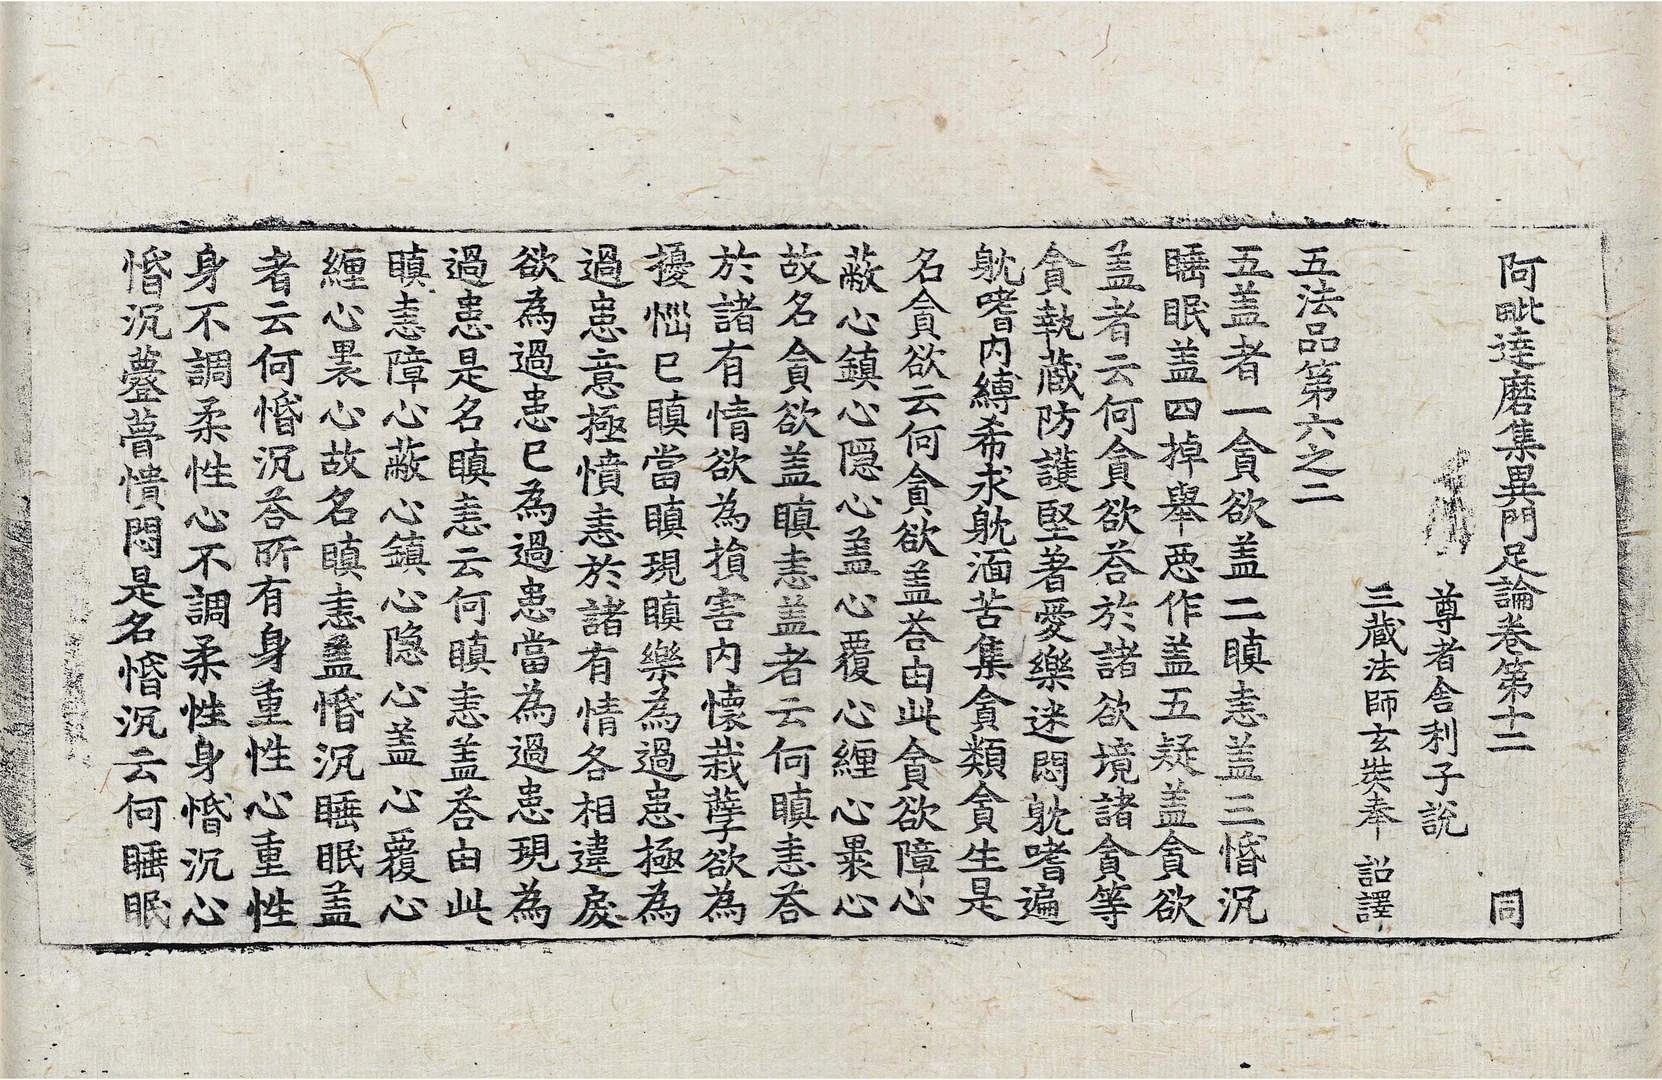 阿毗達磨集異門足論卷第十二 同
尊者舍利子說
三藏法師玄奘奉 詔譯
五法品第六之二
五盖者一貪欲盖二瞋恚盖三惛沉
睡眠盖四掉舉惡作盖五疑盖貪欲
盖者云何貪欲荅於諸欲境諸貪等
貪執藏防護堅著愛樂迷悶躭嗜遍
躭嗜内縛希求躭湎苦集貪類貪生是
名貪欲云何貪欲盖荅由此貪欲障心
蔽心鎮心隱心盖心覆心纏心裹心
故名貪欲盖瞋恚盖者云何瞋恚荅
於諸有情欲為損害内懷栽孽欲為
擾惱已瞋當瞋現瞋樂為過患極為
過患意極憤恚於諸有情各相違戾
欲為過患已為過患當為過患現為
過患是名瞋恚云何瞋恚盖荅由此
瞋恚障心蔽心鎮心隱心盖心覆心
纏心裹心故名瞋恚盖惛沉睡眠盖
者云何惛沉荅所有身重性心重性
身不調柔性心不調柔性身惛沉心
惛沉瞢憒悶是名惛沉云何睡眠